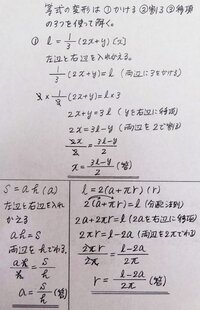 等式の変形は①かける②割る③移項
の3つを使って解く。
① l = 1/3 (2x+y) [x]
左辺と右辺を入れかえる。
1/3 (2x+y) = l (両辺に3をかける)
3 × 1/3 (2x+y) = l×3
2x+y = 3l (yを右辺に移項)
2x = 3l-y (両辺を2で割る)
2x/2 = 3l-y/2
x = 3l-y/2 (答)
S = ah (a)
左辺と右辺を入れ
かえる
ah = S
両辺をhでわる
ah/h = S/h
a = S/h (答)
l = 2(a+πr) (r)
2(a+πr) = l (分配法則)
2a+2πr = l (2aを右辺に移項)
2πr = l-2a (両辺を2πでわる)
2πr/2π = l-2a/2π
r = l-2a/2π (答)